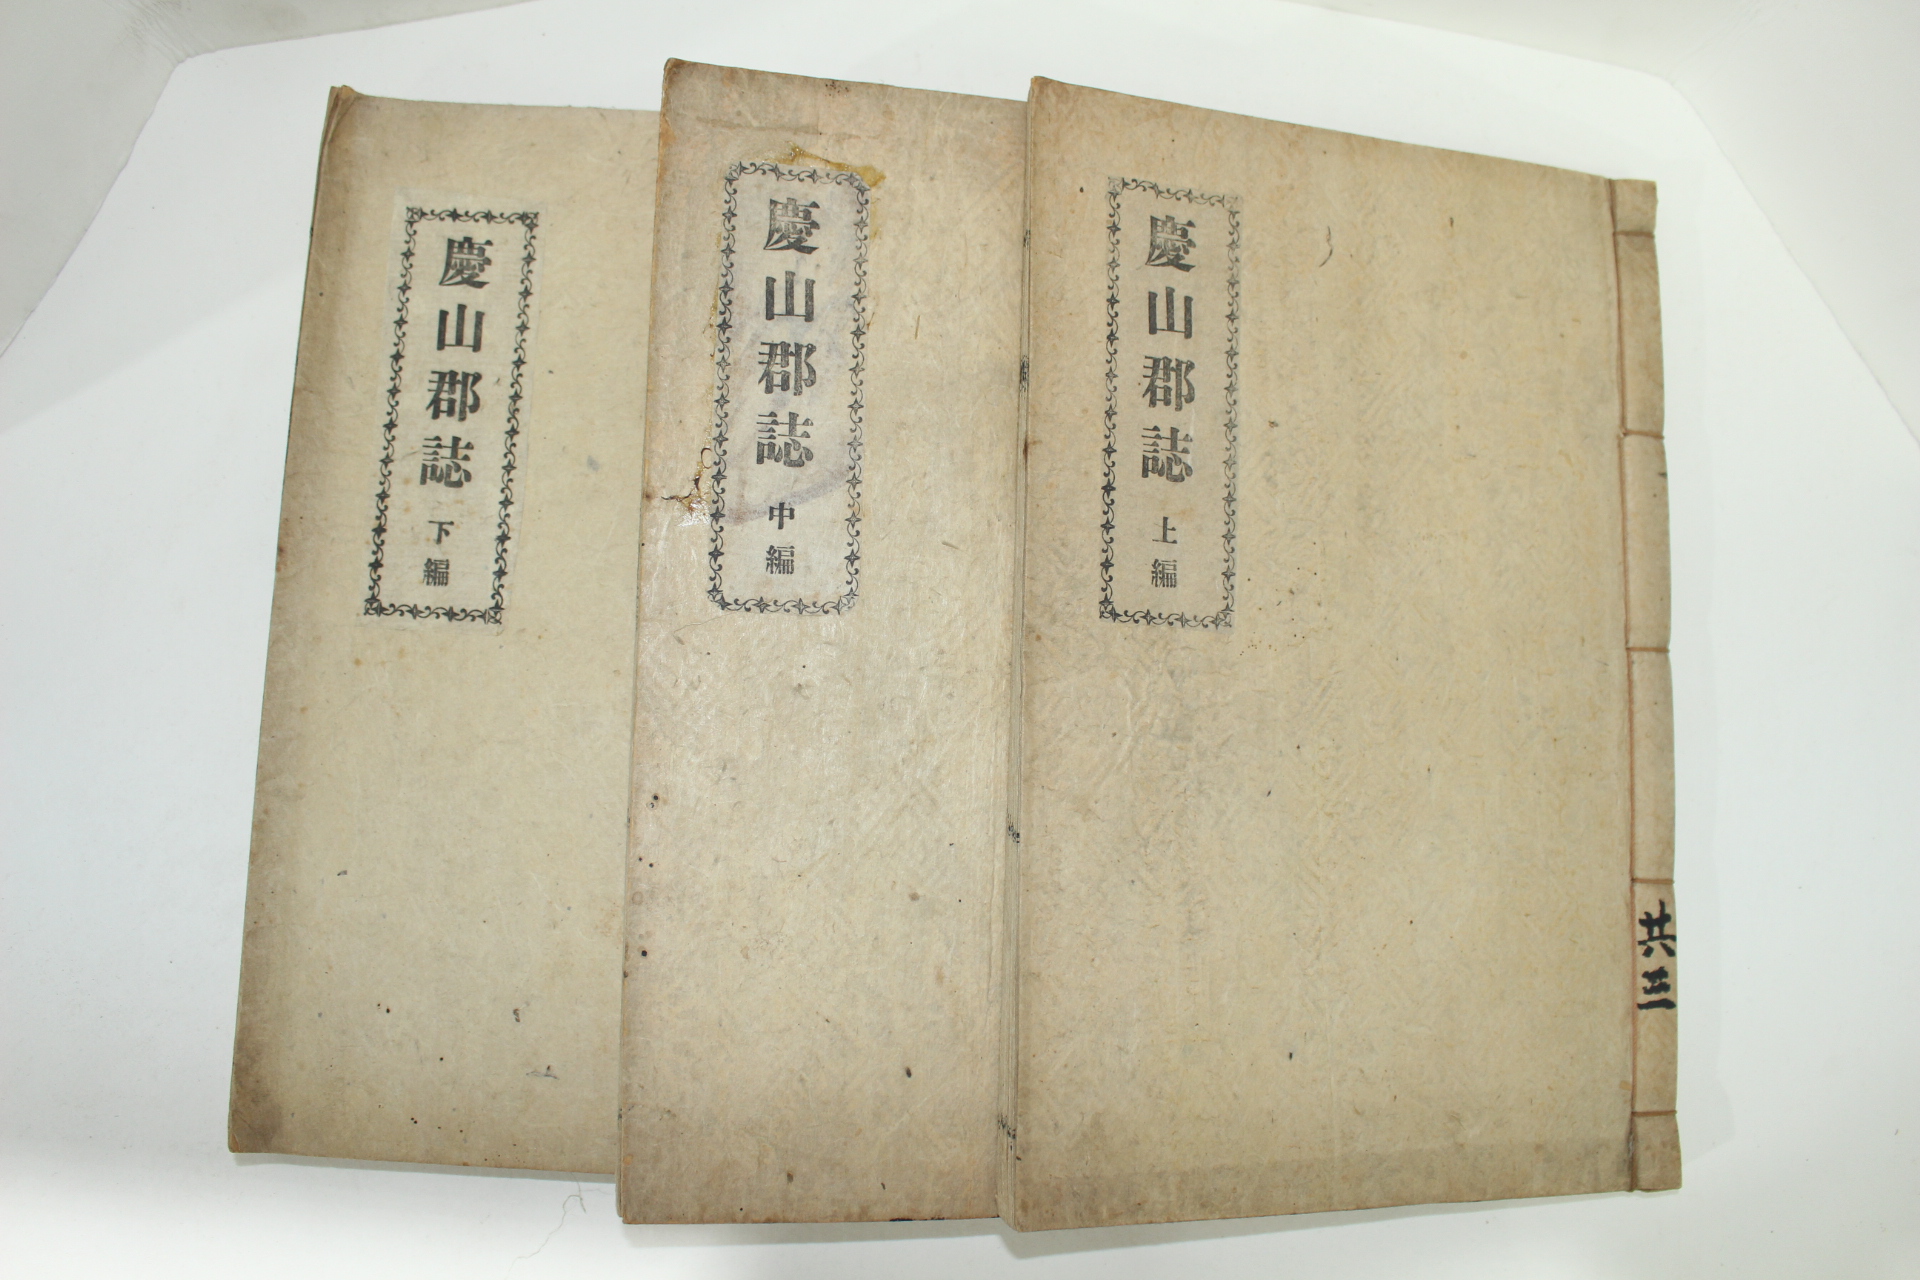 慶山郡誌 上編
共三
慶山郡誌 中編
慶山郡誌 下編